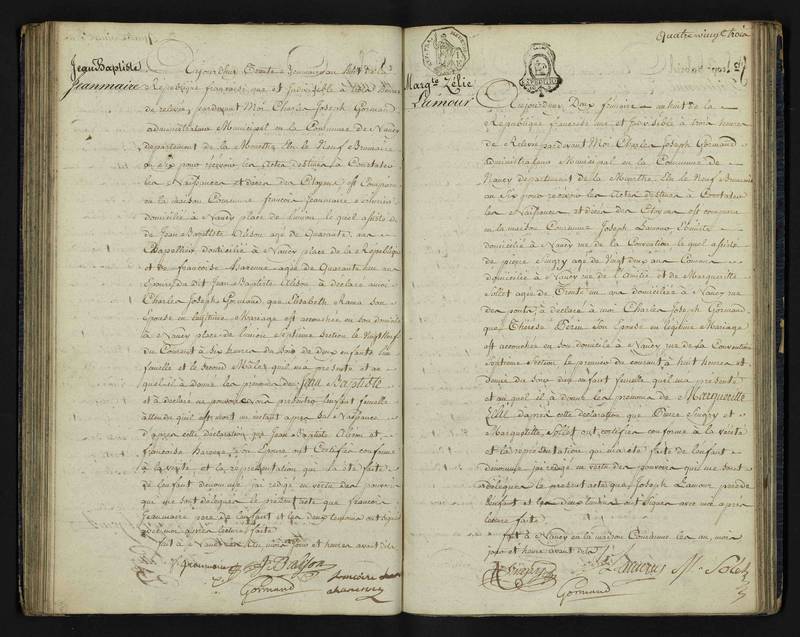 Jean Baptiste
Jeanmaire
Aujourd'hui Trente Brumaire an huit de la
République française une et indivisible à trois heures
de relevée, pardevant Moi Charles Joseph Gormand
administrateur Municipal en la Commune de Nancy
département de la Meurthe Elu le Neuf Brumaire
an Six pour recevoir les Actes destinés à Constater
les Naissances et décès des Citoyens est comparu
en la maison Commune françois jeanmaire
domicilié à Nancy place de l'union lequel assisté
de Jean Baptiste agé de Quarante ans
Chapellier domicilié à Nancy place de la République
et de françoise agée de Quarante un ans
Epouse du dit Jean Baptiste a déclaré à moi
Charles Joseph Gormand, que Elisabeth son
Epouse en légitime Mariage est accouchée en son domicile
à Nancy place de l'union Septième Section le Vingt Neuf
du Courant à Six heures du Soir de deux enfants un
femelle et le Second Mâle qu'il m'a présenté et au
quel il a donné les prénoms de Jean Baptiste
et a déclaré ne pouvoir présenter l'enfant femelle
attendu qu'il est mort un instant après Sa Naissance
d'après cette déclaration que Jean Baptiste et
françoise Son Epouse ont Certifiée conforme
à la vérité et la représentation qui m'a été faite
de l'enfant dénommé j'ai rédigé en vertu des pouvoirs
qui me sont délégués le présent acte que françois
Jeanmaire père de l'enfant et les deux témoins ont signé
avec moi après lecture faite
fait à Nancy les an, mois jour et heures avant dits
Gormand
Quatre vingt trois
Margte Zélie
Lamour
Aujourd'hui Deux frimaire an huit de la
République francaise une et indivisible à trois heures
de Relevée pardevant Moi Charles Joseph Gormand
administrateur Municipal en la Commune de
Nancy département de la Meurthe Elu le Neuf Brumaire
an Six pour recevoir les Actes destinés à Constater
les Naissances et décès des Citoyens est comparu
en la maison Commune Joseph Lamour
domicilié à Nancy rue de la Convention lequel assisté
de pierre agé de Vingt deux ans
domicilié à Nancy rue de l'Amitié et de Marguerite
agée de Trente un ans domiciliée à Nancy rue
des ponts, a déclaré à moi Charles Joseph Gormand,
que Thérèse Son Epouse en légitime Mariage
est accouchée en son domicile à Nancy rue de la Convention
Septième Section le premier du courant à huit heures et
demie du soir d'un enfant femelle qu'il m'a présenté
et auquel il a donné les prénoms de Marguerite
Zélie d'après cette déclaration que Pierre et
Marguerite ont certifiée conforme à la vérité
et la représentation qui m'a été faite de l'enfant
dénommé j'ai rédigé en vertu des pouvoirs qui me sont
délégués le présent acte que Joseph Lamour père de
l'enfant et les deux témoins ont signé avec moi après
lecture faite
fait à Nancy en la maison Commune les an, mois
jour et heure avant dits
Gormand